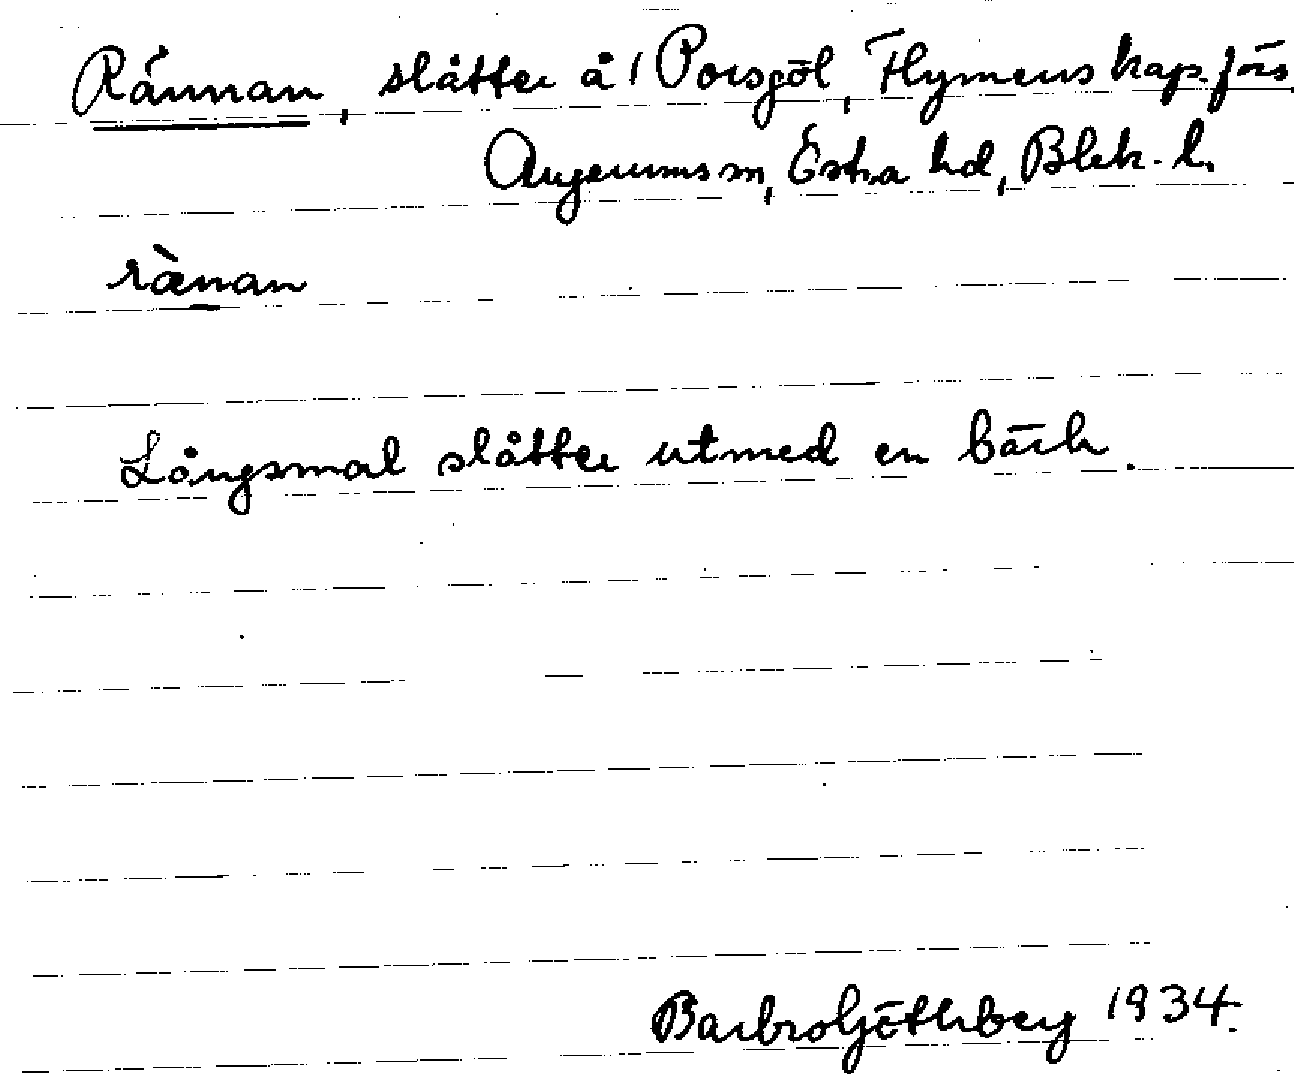 Rännan, slåtter å 1 Porsgöl, Flymens kap. förs
Augerums sn, Östra hd, Blek. l.
rànan
Långsmal slåtter utmed en bäck.
Barbro Göthberg 1934.